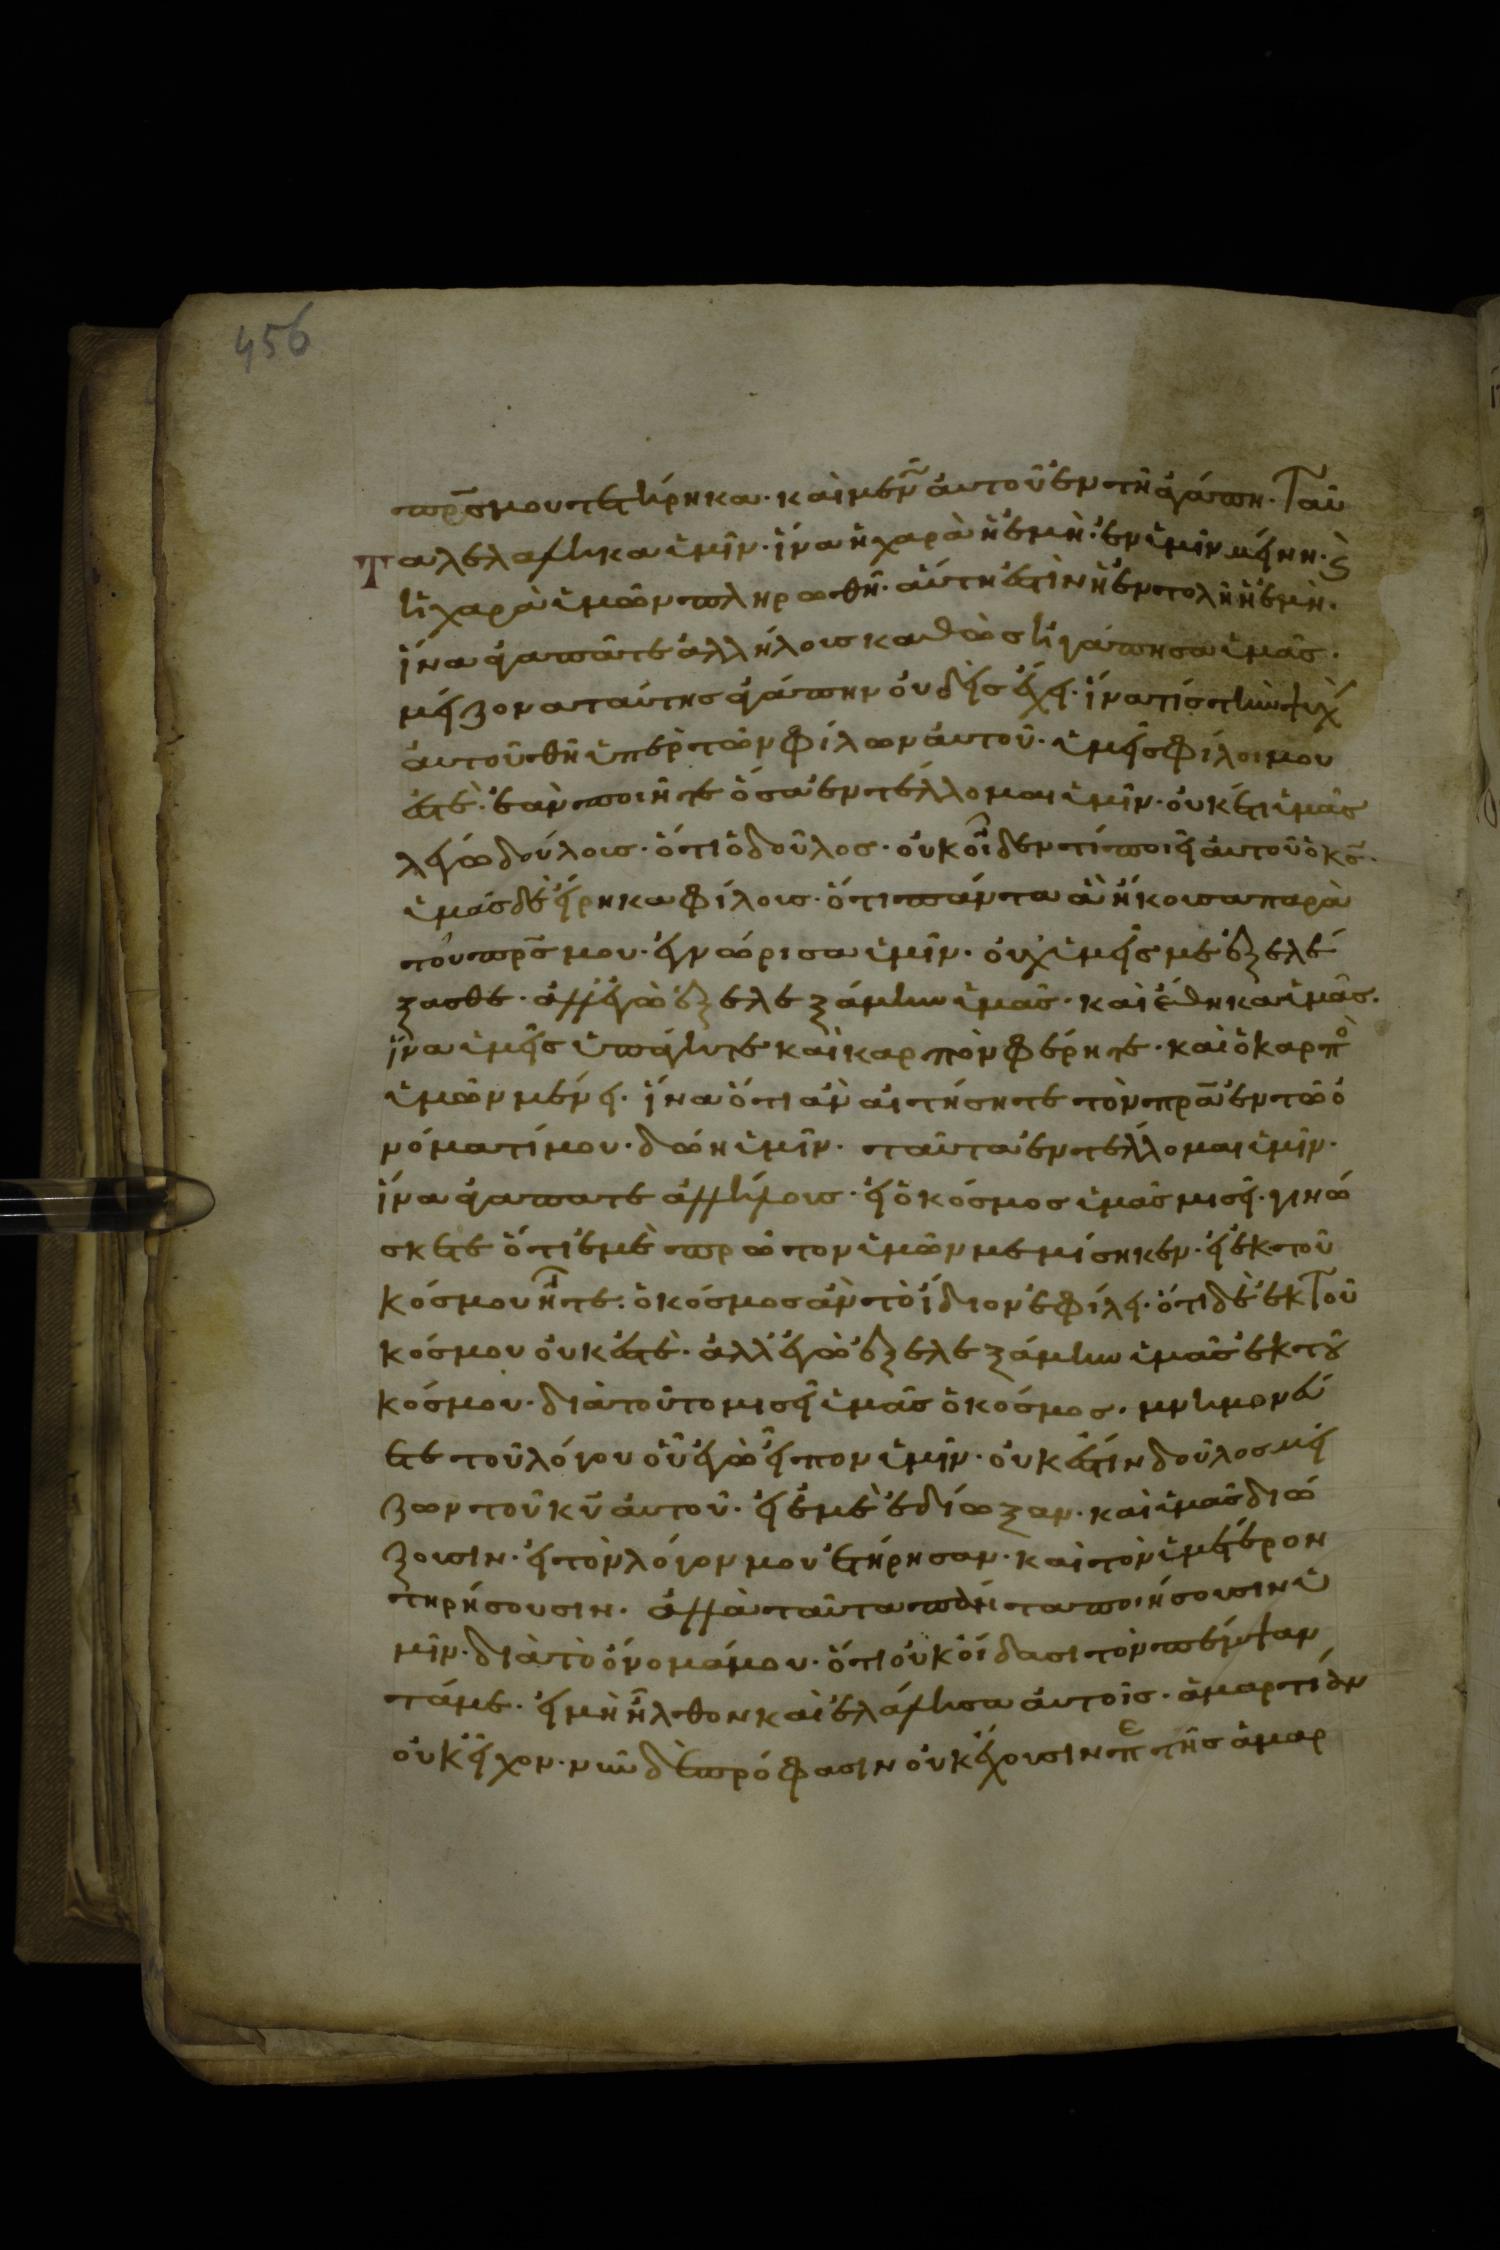 456
πρ̅ς μου τετήρηκα· καὶ μένω ἀυτοῦ ἐν τῆ ἀγάπη· Ταῦ
τα λελάληκα ὑμῖν· ἵνα ἡ χαρὰ ἡ ἐμὴ· ἐν ὑμῖν μείνη· ϗ
ἡ χαρὰ ὑμῶν πληρωθῆ· ἁύτη ἐστὶν ἡ ἐντολὴ ἡ ἐμὴ·
ἵνα ἀγαπᾶτε ἀλλήλους καθὼς ἠγάπησα ὑμᾶς·
μείζονα ταύτης ἀγάπην ὀυδεὶς ἔχει· ἵνα τίς τὴν ψυχὴ
ἀυτοῦ θῆ ὑπὲρ τῶν φίλων ἀυτοῦ· ὑμεῖς φίλοι μου
ἐστὲ· ἐὰν ποιῆτε ὅσα ἐντέλλομαι ὑμῖν· ὀυκέτι ὑμᾶς
λέγω δούλους· ὅτι ὁ δοῦλος· ὀυκ οἶδεν τί ποιεῖ ἀυτοῦ ὁ κ̅ς·
ὑμᾶς δὲ ἔιρηκα φίλους· ὅτι πάντα ἃ ἤκουσα παρὰ
τοῦ πρ̅ς μου· ἐγνώρισα ὑμῖν· ὀυχ ὑμεῖς με ἐξελέ
ξασθε· ἀλλ' ἐγὼ ἐξελεξάμην ὑμᾶς· καὶ ἔθηκα ὑμᾶς·
ἵνα ὑμεῖς ὑπάγητε καὶ καρπὸν φέρητε· καὶ ὁ καρπὸ
ὑμῶν μένει· ἵνα ὅτι ἂν ἀιτήσητε τὸν πρ̅α ἐν τῶ ὀ
νόματί μου· δώη ὑμῖν· ταῦτα ἐντέλλομαι ὑμῖν·
ἵνα ἀγαπατε ἀλλήλους· ἐι ὁ κόσμος ὑμᾶς μισεῖ· γινώ
σκετε ὅτι ἐμὲ πρῶτον ὑμῶν μεμίσηκεν· ἐι ἐκ τοῦ
κόσμου ἦτε· ὁ κόσμος ἂν τὸ ἴδιον ἐφίλει· ὅτι δὲ ἐκ Τοῦ
κόσμου ὀυκ ἐστὲ· ἀλλ' ἐγὼ ἐξελεξάμην ὑμᾶς ἐκ τοῦ
κόσμου· διὰ τοῦτο μισεῖ ὑμᾶς ὁ κόσμος· μνημονέυ
ετε τοῦ λόγου ὁῦ ἐγὼ εἶπον ὑμῖν· ὀυκ ἔστιν δοῦλος μεί
ζων τοῦ κ̅υ ἀυτοῦ· ἐι ἐμὲ ἐδίωξαν· καὶ ὑμᾶς διώ
ξουσιν· ἐι τὸν λόγον μου ἐτήρησαν· καὶ τὸν ὑμέτερον
τηρήσουσιν· ἀλλὰ ταῦτα πάντα ποιήσουσιν ὑ
μῖν· διὰ τὸ ὄνομά μου· ὅτι ὀυκ ὄιδασι τὸν πέμψαν
τά με· ἐι μὴ ἦλθον καὶ ἐλάλησα ἀυτοῖς· ἁμαρτίαν
ὀυκ εἶχον· νῦν δὲ πρόφασιν ὀυκ ἔχουσιν πε τῆς ἁμαρ